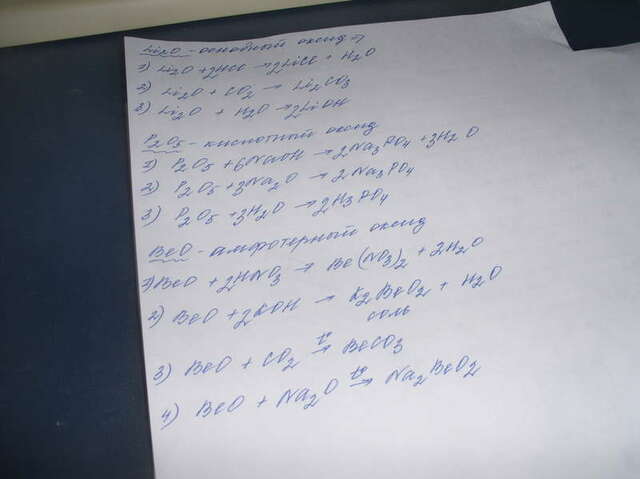 Li2O - основный оксид =>
1) Li2O + 2HCl → 2LiCl + H2O
2) Li2O + CO2 → Li2CO3
3) Li2O + H2O → 2LiOH
P2O5 - кислотный оксид
1) P2O5 + 6NaOH → 2Na3PO4 + 3H2O
2) P2O5 + 3Na2O → 2Na3PO4
3) P2O5 + 3H2O → 2H3PO4
BeO - амфотерный оксид
1) BeO + 2HNO3 → Be(NO3)2 + 2H2O
2) BeO + 2KOH → K2BeO2 + H2O
соль
3) BeO + CO2 t° → BeCO3
4) BeO + Na2O t° → Na2BeO2